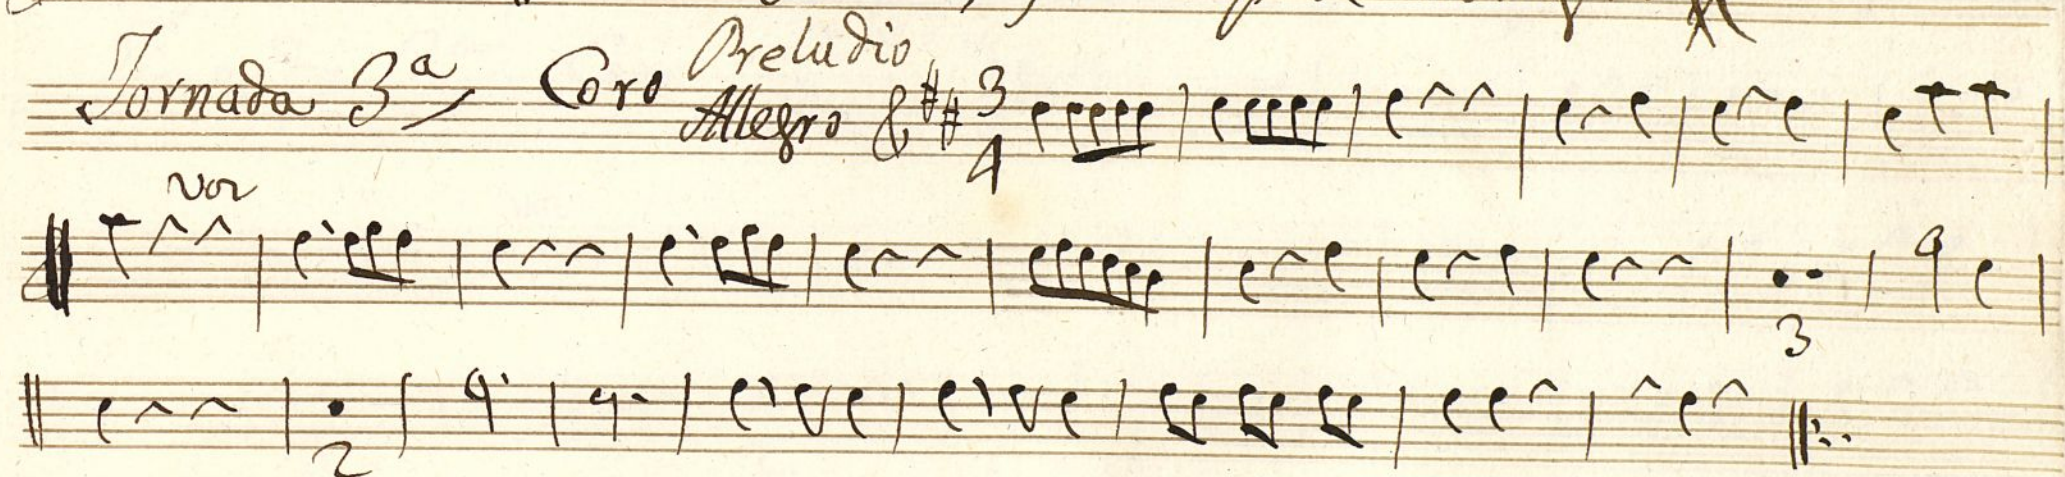 Jornada 3ª Coro Preludio
Allegro 3
4
voz
3
2